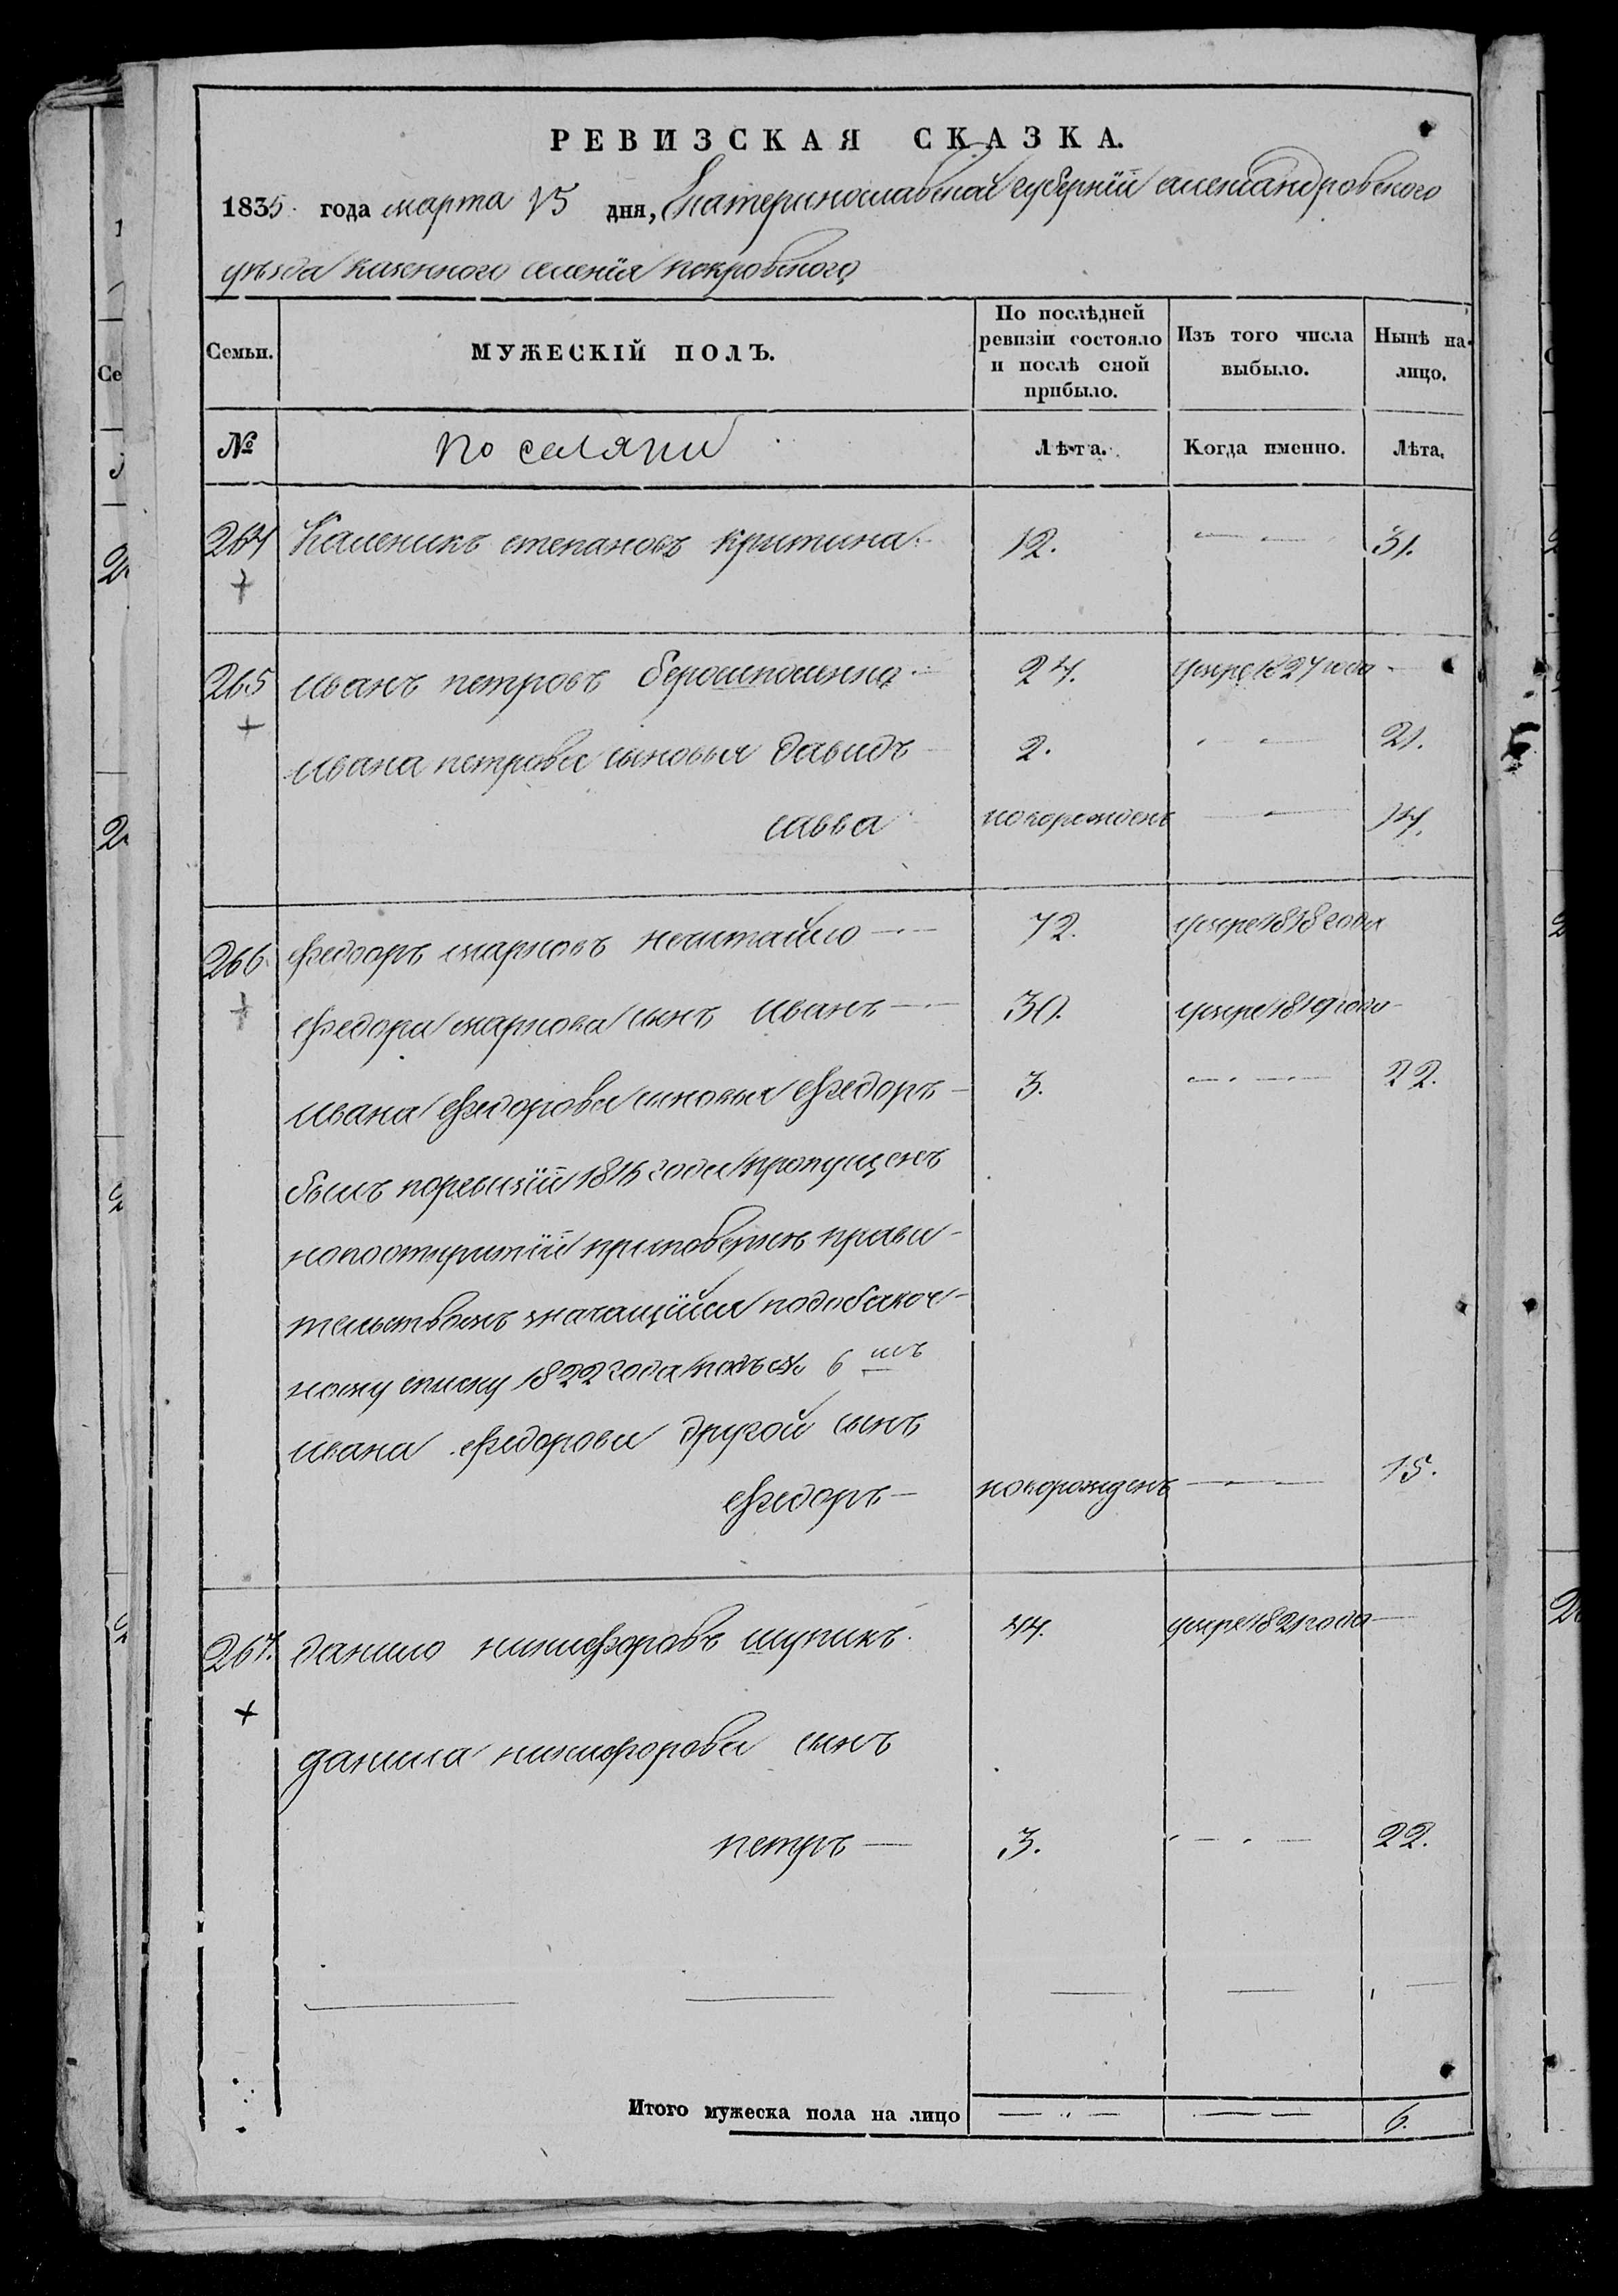 РЕВИЗСКАЯ СКАЗКА.
1835 года марта 15 дня, Екатеринославской губернїи александровского
уѣзда казенного селенїя покровского
Семьи. МУЖЕСКІЙ ПОЛЪ. По послѣдней ревизіи состояло и послѣ оной прибыло. Изъ того числа выбыло. Нынѣ на-лицо.
№ поселяни Лѣта. Когда именно. Лѣта.
264 Каленикъ степановъ 12. 31.
265 иванъ петровъ 24. умре 1827 года
ивана петрова сыновья давидъ 2. 21.
савва новорожденъ 14.
266 федоръ марковъ нечитайло 72. умре 1818 года
федора маркова сынъ иванъ 30. умре 1819 года
ивана федорова сыновья федоръ 3. 22.
былъ поревизїи 1816 года пропущенъ
нопооткритїи прави-
тельствомъ значащїйся
ному списку 1822 года подъ № 6 мъ
ивана федорова другой сынъ
федоръ новорожденъ 15.
267. данило никифоровъ шупикъ. 44. умре 1821 года
данила никифорова сынъ
петръ 3. 22.
Итого мужеска пола на лицо 6.